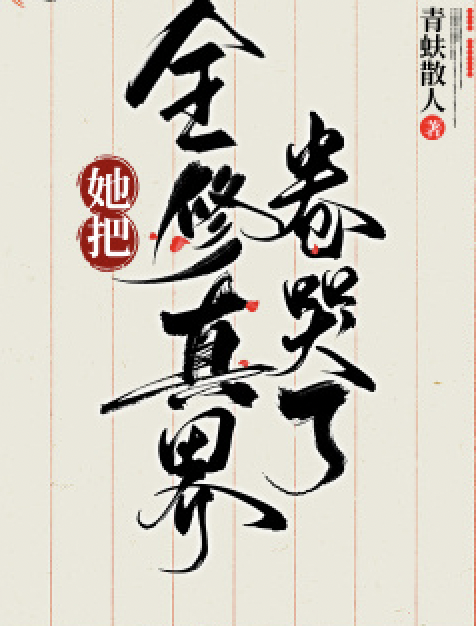 她把
全修真界
卷哭了
青蚨散人 著